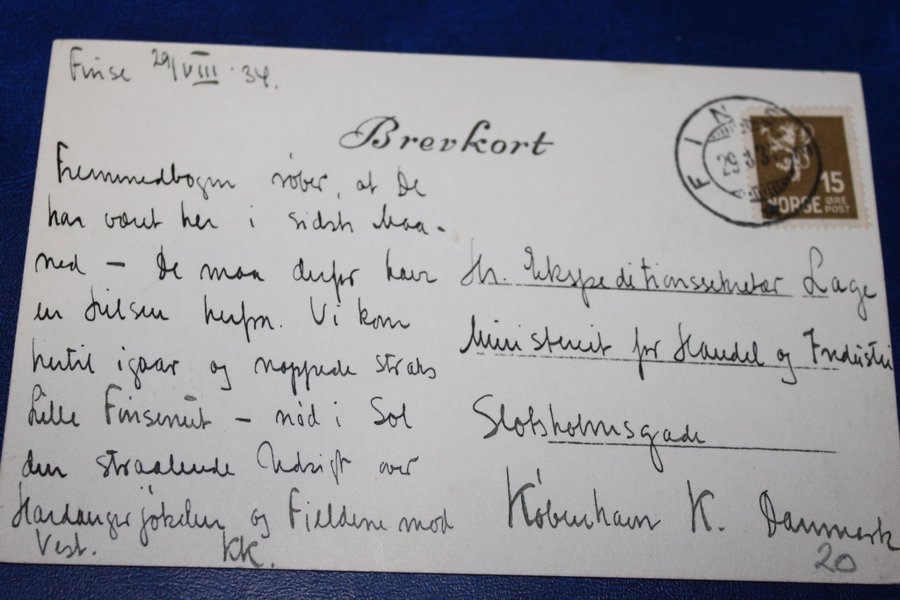 Finse 29/VIII. 34.
Brevkort
FINSE
29 8 34
15
NORGE ØRE
POST
Fremmedbogen røber, at De
har været her i sidste Maa-
ned – De maa derfor have
en Hilsen herfra. Vi kom
hertil igaar og nappede straks
Lille Finsenut – nød i Sol
den straalende Udsigt over
Hardangerjøkelen og Fjeldene mod
Vest. KK.
Hr. Ekspeditionssekretær Lage
Ministeriet for Handel og Industri
Slotsholmsgade
København K. Danmark
20